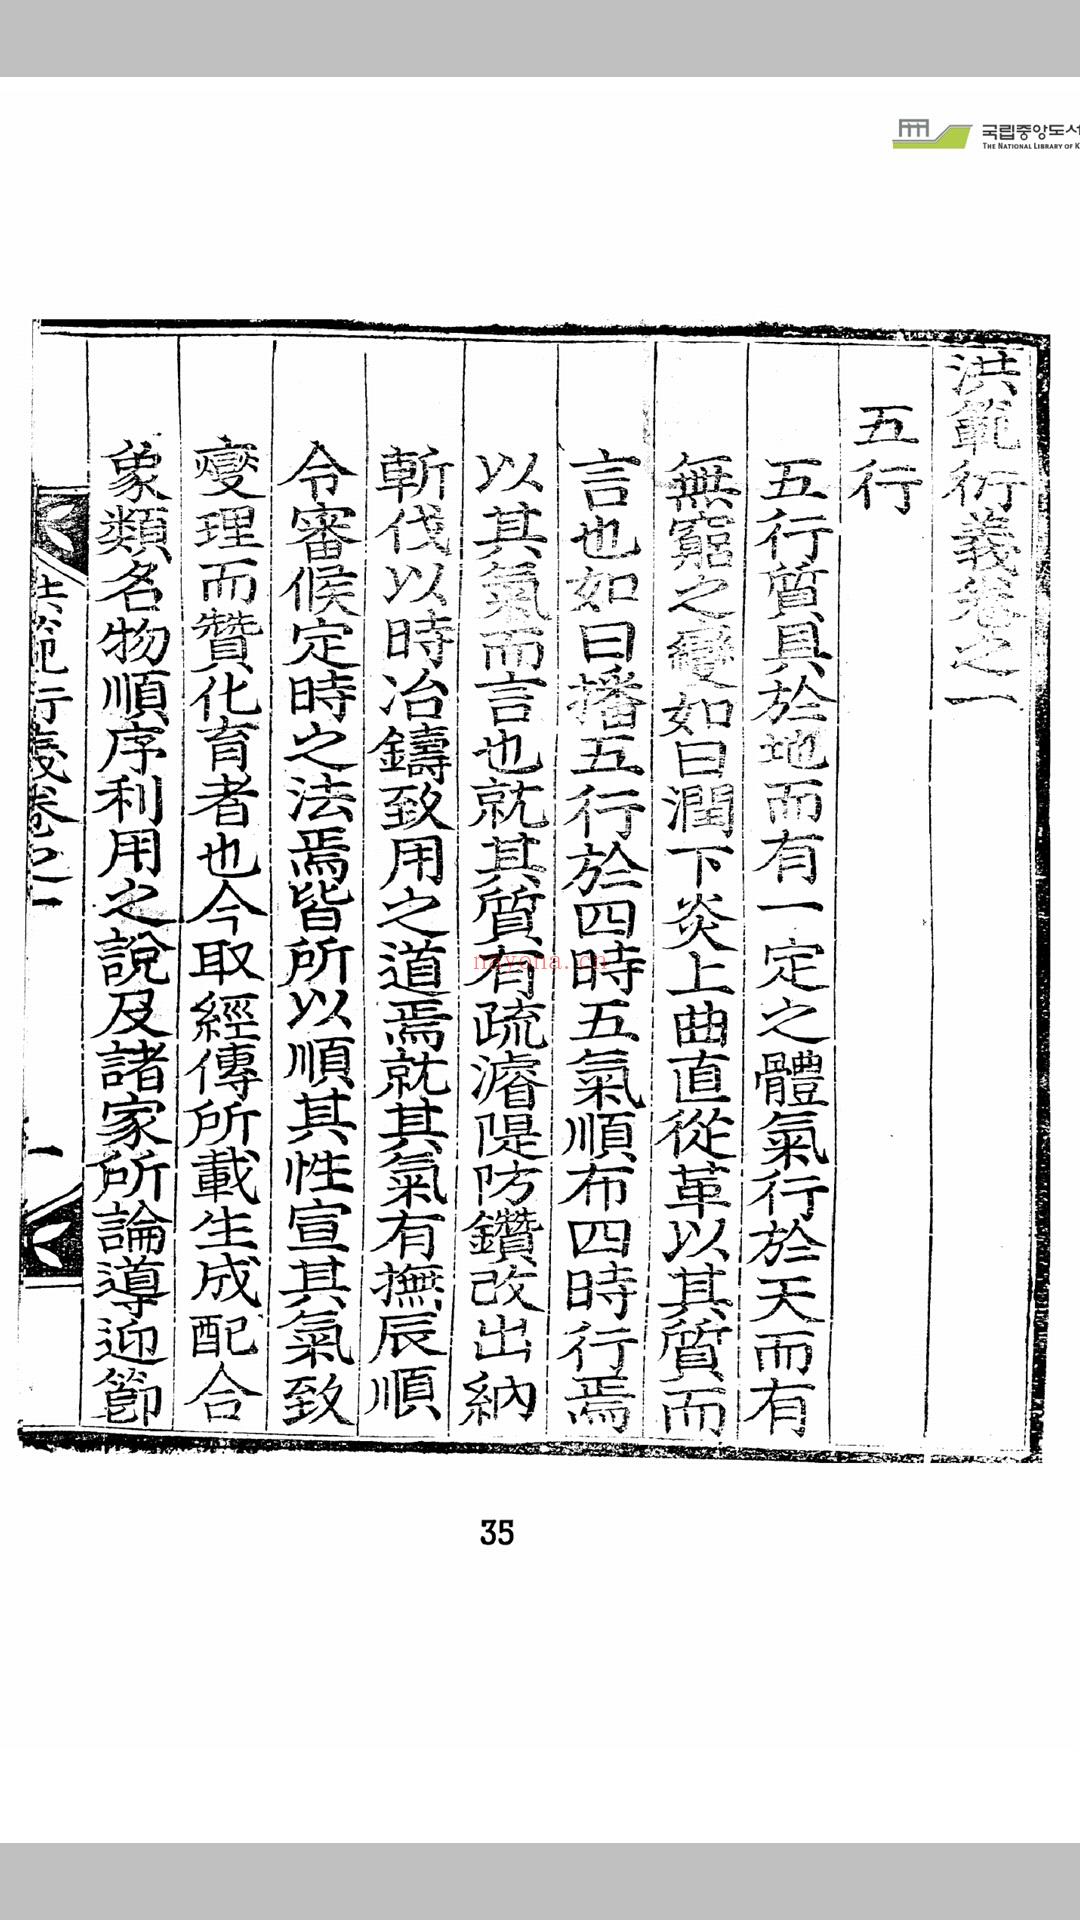 국립중앙도서
THE NATIONAL LIBRARY OF K
洪範衍義卷之一
五行
五行質具於地而有一定之體氣行於天而有
無窮之變如曰潤下炎上曲直從革以其質而
言也如曰播五行於四時五氣順布四時行焉
以其氣而言也就其質有疏濬隄防鑽改出納
斬伐以時冶鑄致用之道焉就其氣有撫辰順
令審候定時之法焉皆所以順其性宣其氣致
燮理而贊化育者也今取經傳所載生成配合
象類名物順序利用之說及諸家所論導迎節
洪範衍義卷之一
一
nayona.cn
35